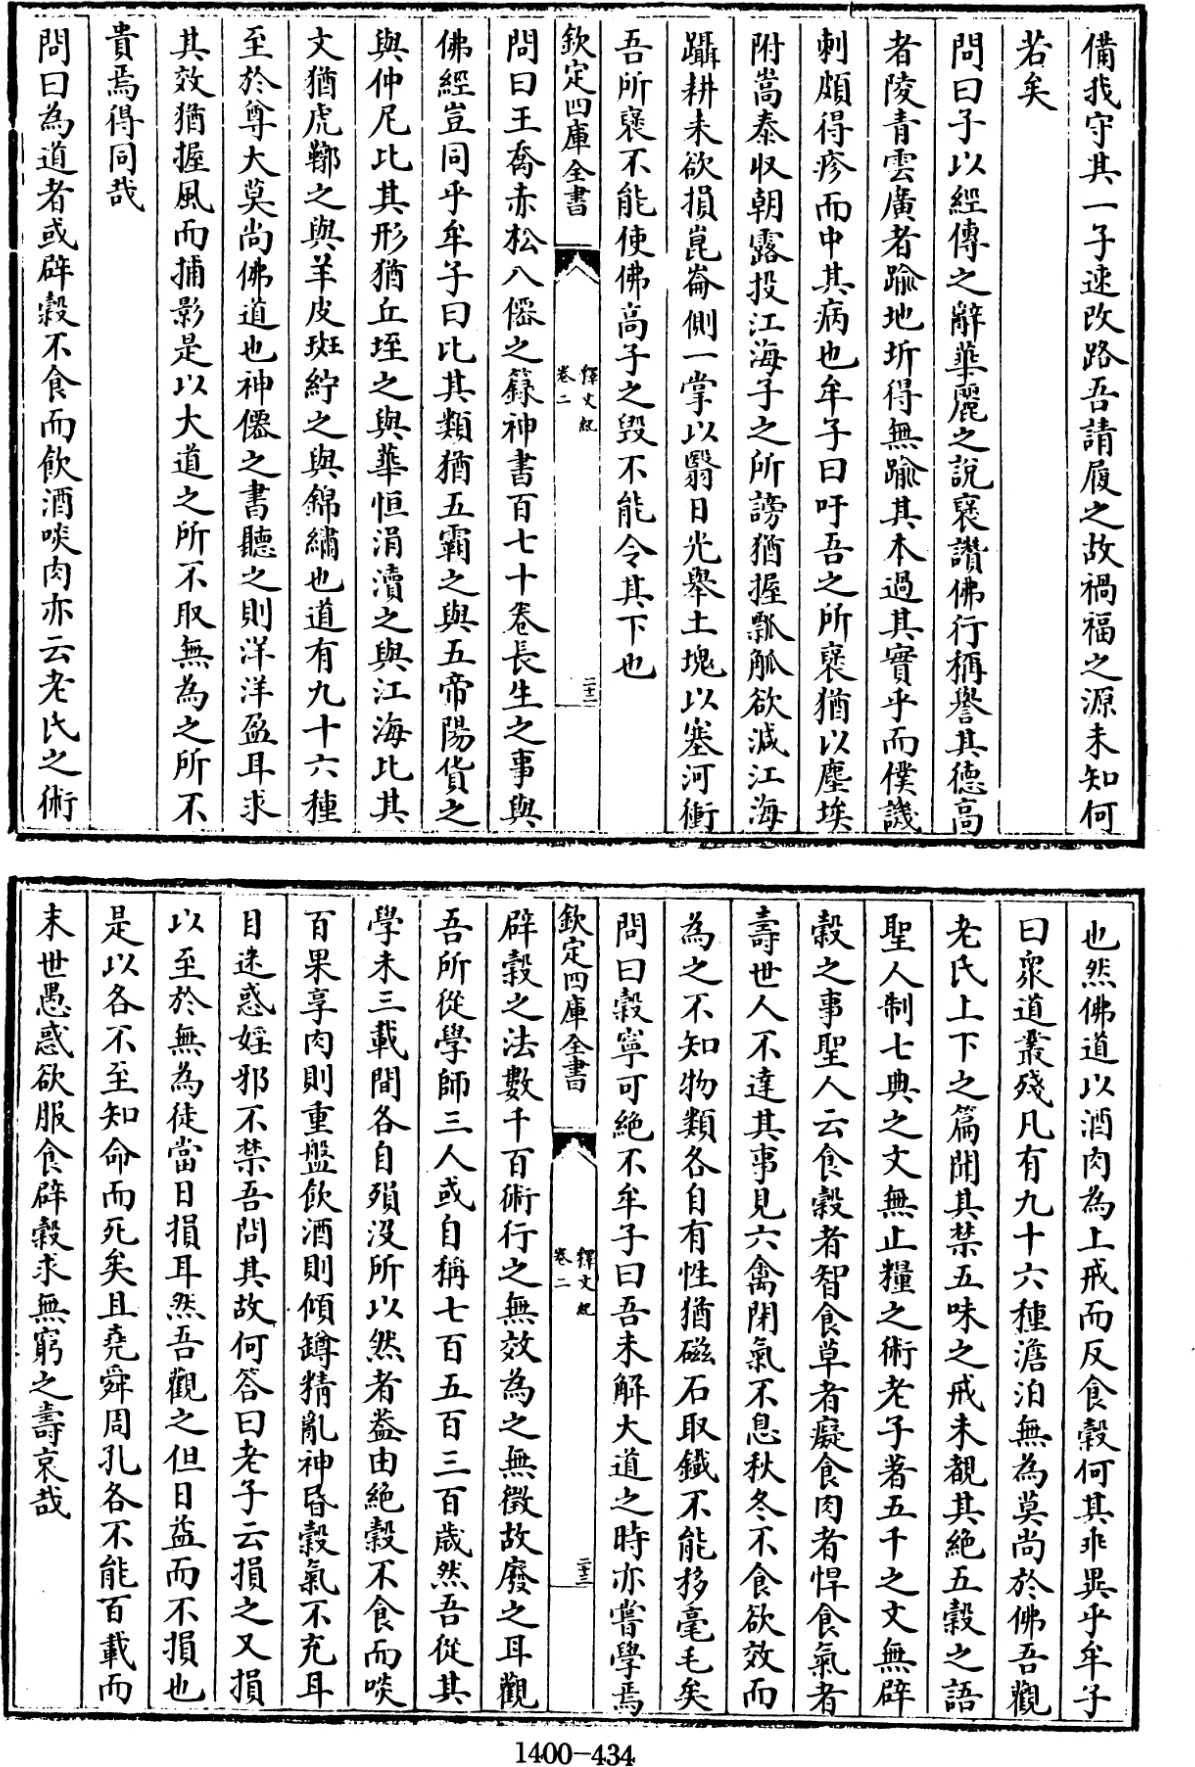 備我守其一子速改路吾請履之故禍福之源未知何
若矣
問曰子以經傳之辭華麗之說褒讚佛行稱譽其德高
者陵青雲廣者踰地圻得無踰其本過其實乎而僕譏
刺頗得疹而中其病也牟子曰吁吾之所褒猶以塵埃
附嵩泰收朝露投江海子之所謗猶握瓢觚欲減江海
躡耕耒欲損崑崙側一掌以翳日光舉土塊以塞河衝
吾所褒不能使佛高子之毀不能令其下也
欽定四庫全書
釋文紀
卷二
二十二
問曰王喬赤松八僊之籙神書百七十卷長生之事與
佛經豈同乎牟子曰比其類猶五霸之與五帝陽貨之
與仲尼比其形猶丘垤之與華恒涓瀆之與江海比其
文猶虎鞹之與羊皮斑紵之與錦繡也道有九十六種
至於尊大莫尚佛道也神僊之書聽之則洋洋盈耳求
其效猶握風而捕影是以大道之所不取無為之所不
貴焉得同哉
問曰為道者或辟穀不食而飲酒啖肉亦云老氏之術
也然佛道以酒肉為上戒而反食穀何其乖異乎牟子
曰衆道叢殘凡有九十六種澹泊無為莫尚於佛吾觀
老氏上下之篇聞其禁五味之戒未覩其絶五穀之語
聖人制七典之文無止糧之術老子著五千之文無辟
穀之事聖人云食穀者智食草者癡食肉者悍食氣者
壽世人不達其事見六禽閉氣不息秋冬不食欲效而
為之不知物類各自有性猶磁石取鐵不能移毫毛矣
問曰穀寧可絶不牟子曰吾未解大道之時亦嘗學焉
欽定四庫全書
釋文紀
卷二
二十三
辟穀之法數千百術行之無效為之無徵故廢之耳觀
吾所從學師三人或自稱七百五百三百歲然吾從其
學未三載間各自殞沒所以然者葢由絶穀不食而啖
百果享肉則重盤飲酒則傾罇精亂神昏穀氣不充耳
目迷惑婬邪不禁吾問其故何答曰老子云損之又損
以至於無為徒當日損耳然吾觀之但日益而不損也
是以各不至知命而死矣且堯舜周孔各不能百載而
末世愚惑欲服食辟穀求無窮之壽哀哉
1400-434